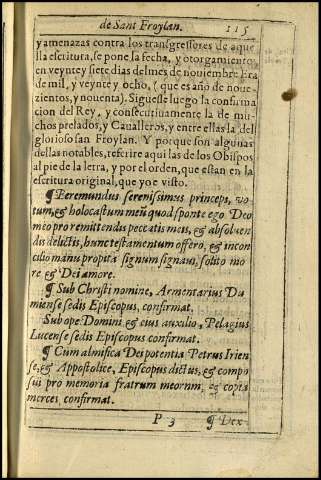 de Sant Froylan. 115
y amenazas contra los transgressores de aque
lla escritura, se pone la fecha, y otorgamiento
en veynte y siete dias del mes de nouiembre Era
de mil, y veynte y ocho, (que es año de noue-
zientos, y nouenta). Siguesse luego la confirma
cion del Rey, y consecutiuamente la de mu-
chos prelados, y Caualleros, y entre ellas la del
glorioso san Froylan. Y porque son algunas
dellas notables, referire aqui las de los Obispos
al pie de la letra, y por el orden, que estan en la
escritura original, que yo e visto.
¶ Veremundus serenissimus princeps, vo
tum, & holocastum meũ quod sponte ego Deo
meo pro remittendis peccatis meis, & absoluen
dis delictis, hunc testamentum offero, & incon
cilio manu propita signum signaui, solito mo
re & Dei amore.
¶ Sub Christi nomine, Armentarius Du
miense sedis Episcopus, confirmat.
Sub ope Domini & eius auxilio, Pelagius
Lucense sedis Episcopus confirmat.
¶ Cum almifica Dei potentia Petrus Irien
se, & Appostolice, Episcopus dictus, & compo
sui pro memoria fratrum meorum, & copta
merces, confirmat.
P 3 ¶ Dex